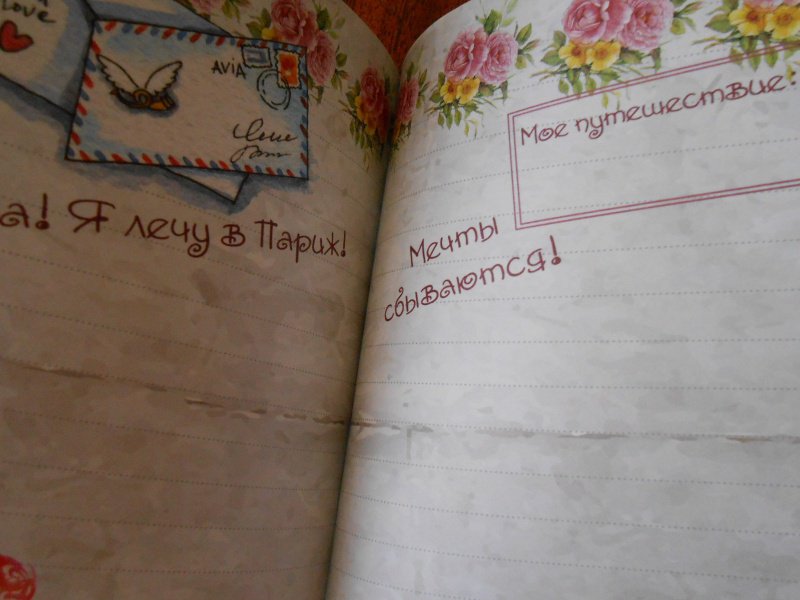 Love
AVIA
а! Я лечу в Париж!
Мое путешествие:
Мечты
сбываются!